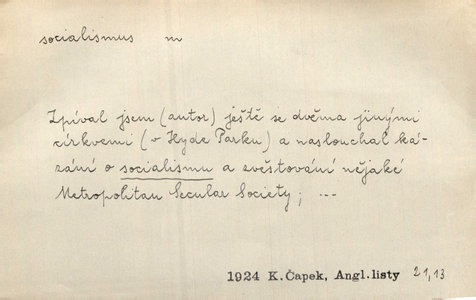 socialismus m
Zpíval jsem (autor) ještě se dvěma jinými
církvemi (v Hyde Parku) a naslouchal ká-
zání o socialismu a zvěstování nějaké
Metropolitan Secular Society; ---
1924 K.Čapek, Angl.listy 21,13